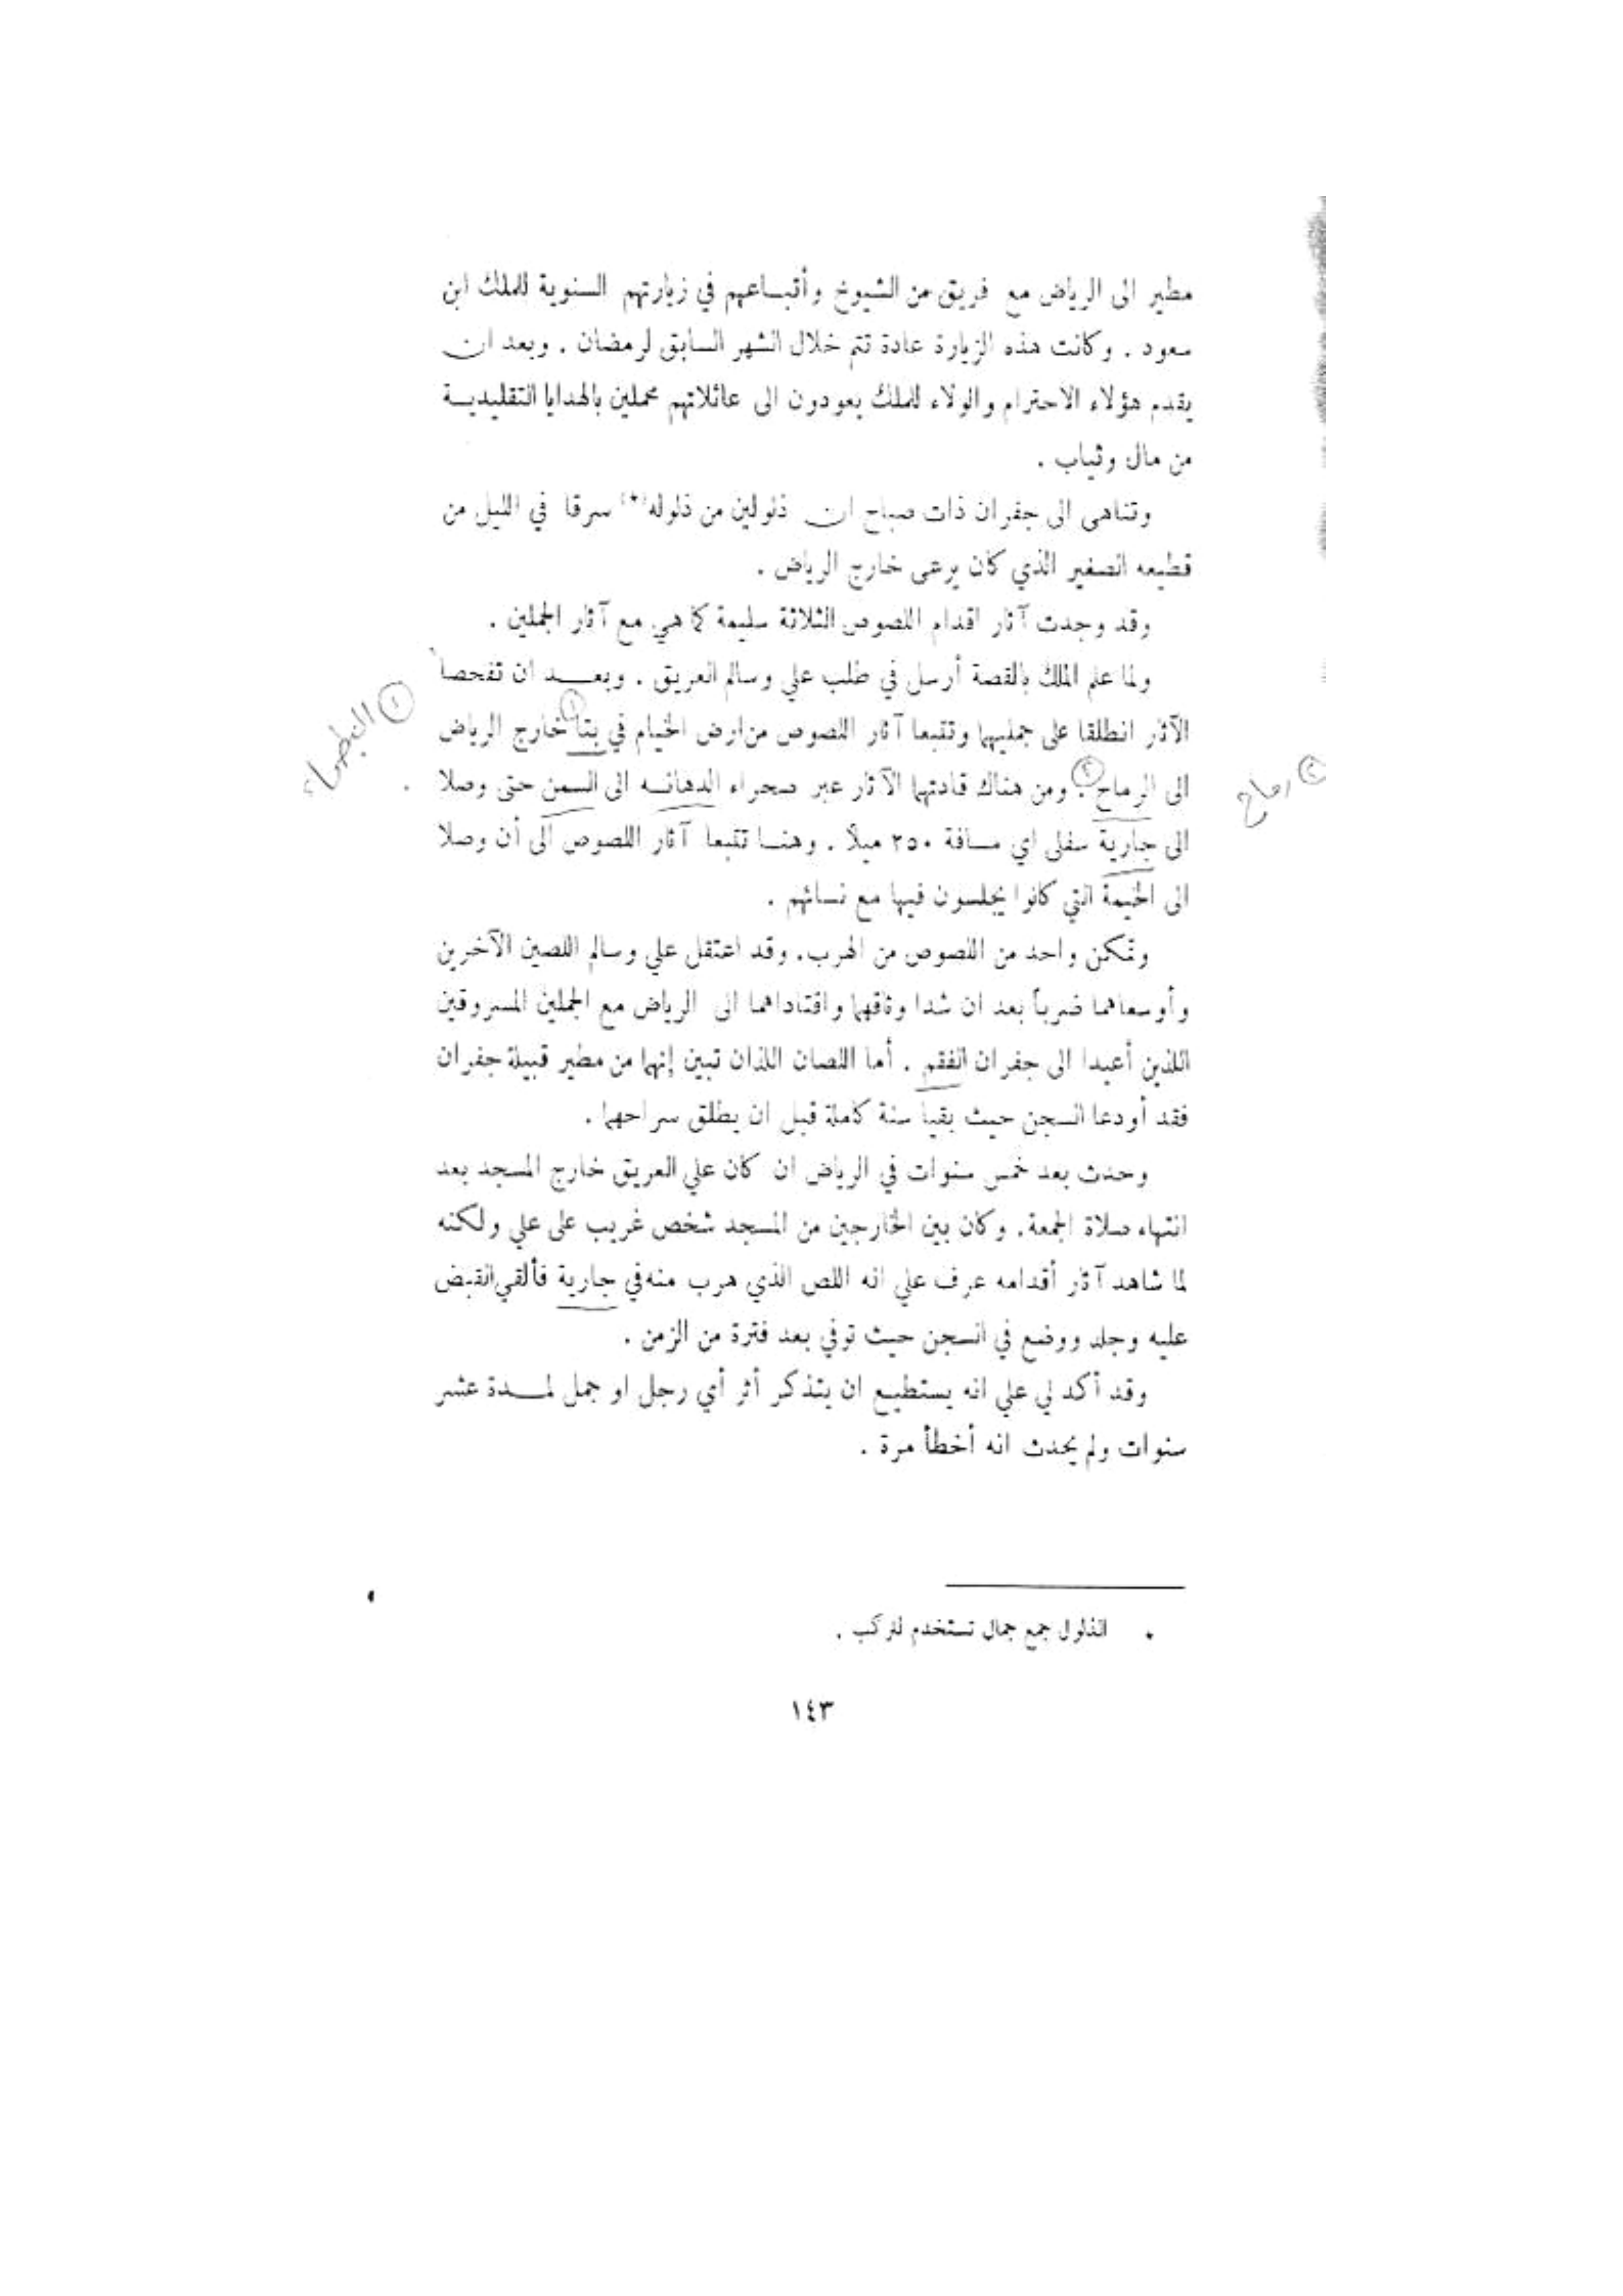 مطير الى الرياض مع فريق من الشيوخ وأتبـاعهم في زيارتهم السنوية للملك ابن
سعود . وكانت هذه الزيارة عادة تتم خلال الشهر السابق لرمضان . وبعد ان
يقدم هؤلاء الاحترام والولاء للملك يعودون الى عائلاتهم محملين بالهدايا التقليديـة
من مال وثياب .
وتناهى الى جفران ذات صباح ان ذلولين من ذلوله(*) سرقا في الليل من
قطيعه الصغير الذي كان يرعى خارج الرياض .
وقد وجدت آثار اقدام اللصوص الثلاثة سليمة كما هي مع آثار الجملين .
ولما علم الملك بالقصة أرسل في طلب علي وسالم العريق . وبعـــد ان تفحصا
① البطحاء
الآثار انطلقا على جمليهما وتتبعا آثار اللصوص من ارض الخيام في بتا ① خارج الرياض
الى الرماح ② . ومن هناك قادتهما الآثار عبر صحراء الدهانـه الى السمن حتى وصلا
② رماح
الى جارية سفلى اي مسافة ٢٥٠ ميلاً . وهنـا تتبعا آثار اللصوص الى أن وصلا
الى الخيمة التي كانوا يجلسون فيها مع نسائهم .
وتمكن واحد من اللصوص من الهرب. وقد اعتقل علي وسالم اللصين الآخرين
وأوسعاهما ضرباً بعد ان شدا وثاقهما واقتاداهما الى الرياض مع الجملين المسروقين
اللذين أعيدا الى جفران الفقم . أما اللصان اللذان تبين إنهما من مطير قبيلة جفران
فقد أودعا السجن حيث بقيا سنة كاملة قبل ان يطلق سراحهما .
وحدث بعد خمس سنوات في الرياض ان كان علي العريق خارج المسجد بعد
انتهاء صلاة الجمعة. وكان بين الخارجين من المسجد شخص غريب على علي ولكنه
لما شاهد آثار أقدامه عرف علي انه اللص الذي هرب منه في جارية فألقي القبض
عليه وجلد ووضع في السجن حيث توفي بعد فترة من الزمن .
وقد أكد لي علي انه يستطيـع ان يتذكر أثر أي رجل او جمل لمـــدة عشر
سنوات ولم يحدث انه أخطأ مرة .
* الذلول جمع جمال تستخدم للركب .
١٤٣